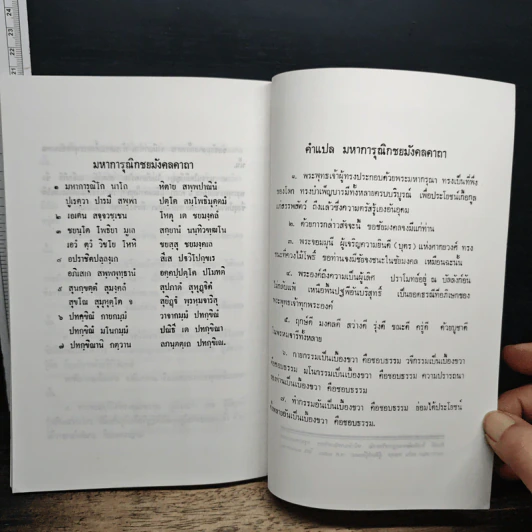 มหาการุณิกชยมังคลคาถา
๑ มหาการุณิโก นาโถ หิตาย สพฺพปาณินํ
ปูเรตฺวา ปารมี สพฺพา ปตฺโต สมฺโพธิมุตฺตมํ
๒ เอเตน สจฺจวชฺเชน โหตุ เต ชยมงฺคลํ
๓ ชยนฺโต โพธิยา มูเล สกฺยานํ นนฺทิวฑฺฒโน
เอวํ ตฺวํ วิชโย โหหิ ชยสฺสุ ชยมงฺคเล
๔ อปราชิตปลฺลงฺเก สีเส ปฐวิโปกฺขเร
อภิเสเก สพฺพพุทฺธานํ อคฺคปฺปตฺโต ปโมทติ
๕ สุนกฺขตฺตํ สุมงฺคลํ สุปภาตํ สุหุฏฺฐิตํ
สุขโณ สุมุหุตฺโต จ สุยิฏฺฐํ พฺรหฺมจาริสุ
๖ ปทกฺขิณํ กายกมฺมํ วาจากมฺมํ ปทกฺขิณํ
ปทกฺขิณํ มโนกมฺมํ ปณิธี เต ปทกฺขิณา
๗ ปทกฺขิณานิ กตฺวาน ลภนฺตตฺเถ ปทกฺขิเณ.
คำแปล มหาการุณิกชยมังคลคาถา
๑. พระพุทธเจ้าผู้ทรงประกอบด้วยพระมหากรุณา ทรงเป็นที่พึ่ง
ของโลก ทรงบำเพ็ญบารมีทั้งหลายครบบริบูรณ์ เพื่อประโยชน์เกื้อกูล
แก่สรรพสัตว์ ถึงแล้วซึ่งความตรัสรู้เองอันอุดม
๒. ด้วยการกล่าวสัจจะนี้ ขอชัยมงคลจงมีแก่ท่าน
๓. พระจอมมุนี ผู้เจริญความยินดี (บุตร) แห่งศากยวงศ์ ทรง
ชนะที่ควงไม้โพธิ์ ขอท่านจงมีชัยชนะในชัยมงคล เหมือนฉะนั้น
๔. พระองค์ถึงความเป็นผู้เลิศ ปราโมทย์อยู่ ณ บัลลังก์อัน
เหนือพื้นปฐพีอันบริสุทธิ์ เป็นยอดธรณีที่อภิเษกของ
พระพุทธเจ้าทุกพระองค์
๕. ฤกษ์ดี มงคลดี สว่างดี รุ่งดี ขณะดี ครู่ดี ด้วยบูชาดี
ในพรหมจารีทั้งหลาย
๖. กายกรรมเป็นเบื้องขวา คือชอบธรรม วจีกรรมเป็นเบื้องขวา
คือชอบธรรม มโนกรรมเป็นเบื้องขวา คือชอบธรรม ความปรารถนา
ของท่านเป็นเบื้องขวา คือชอบธรรม
๗. ทำกรรมอันเป็นเบื้องขวา คือชอบธรรม ย่อมได้ประโยชน์
ทั้งหลายอันเป็นเบื้องขวา คือชอบธรรม.